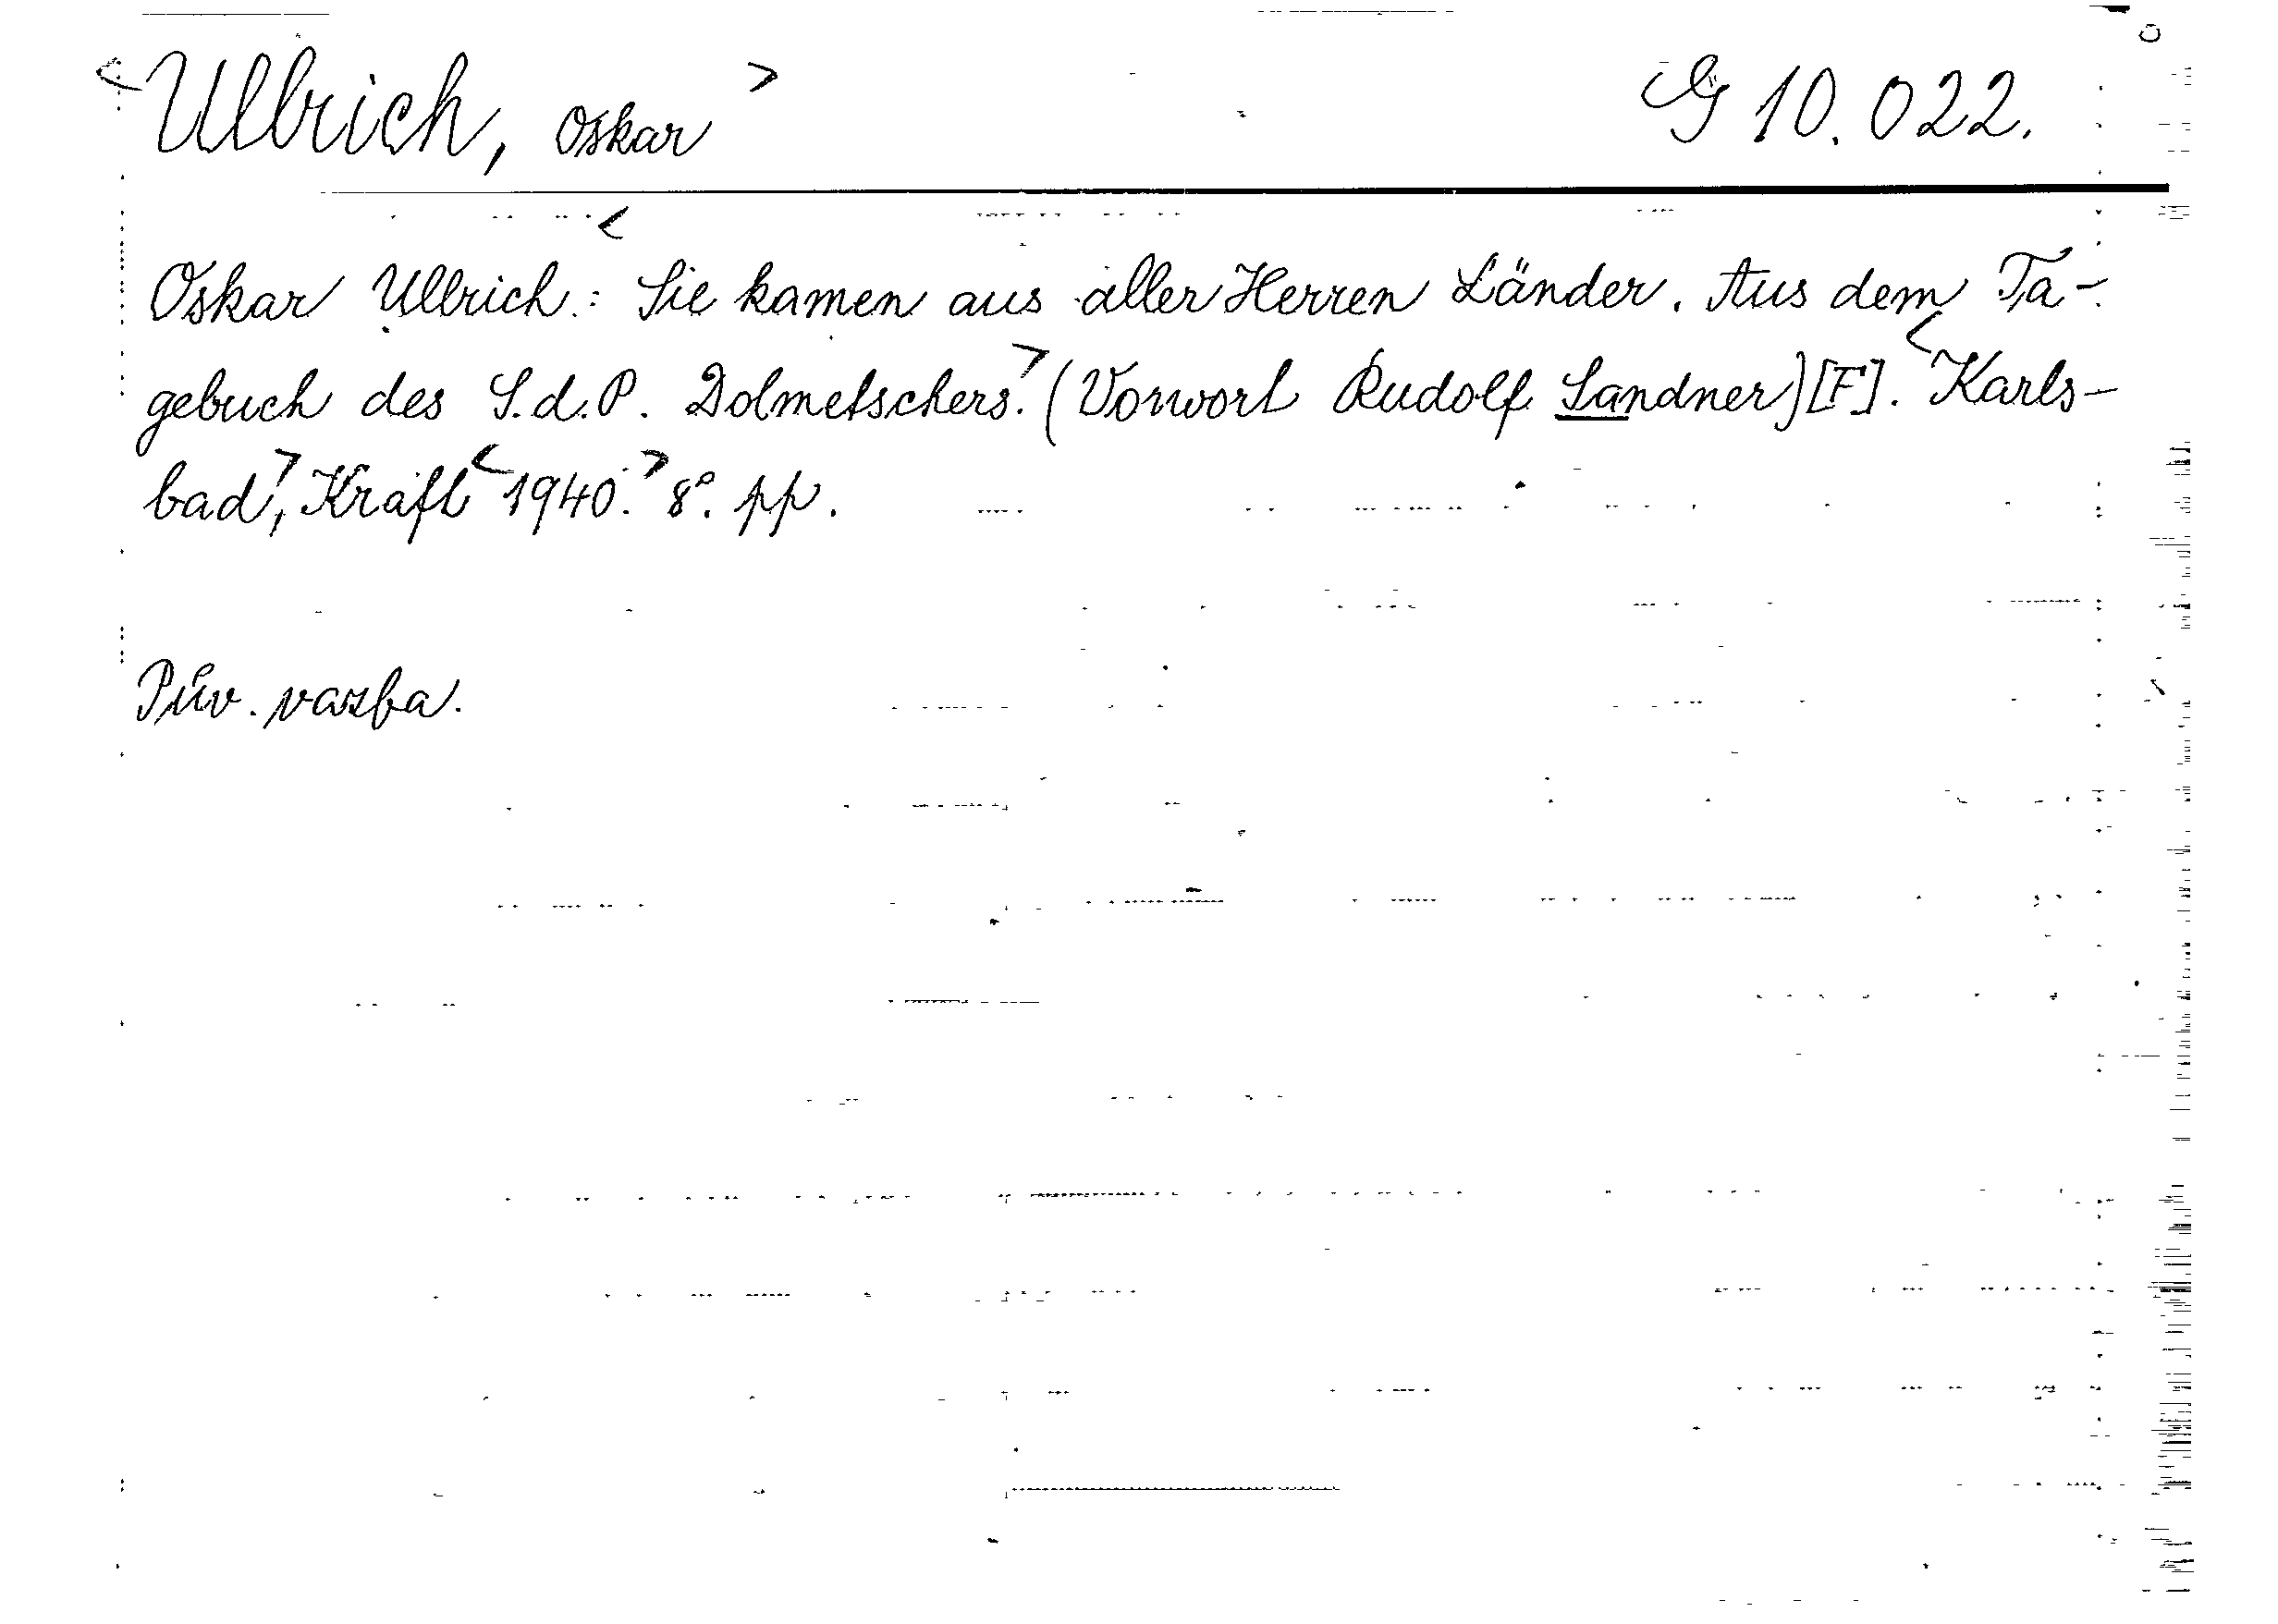 <Ullrich, Oskar> G 10.022.
Oskar Ullrich: <Sie kamen aus aller Herren Länder. Aus dem Ta-
gebuch des S.d.P. Dolmetschers.> (Vorwort Rudolf Sandner)[F]. <Karls-
bad>, Kraft <1940.> 8°. pp.
Pův. vazba.